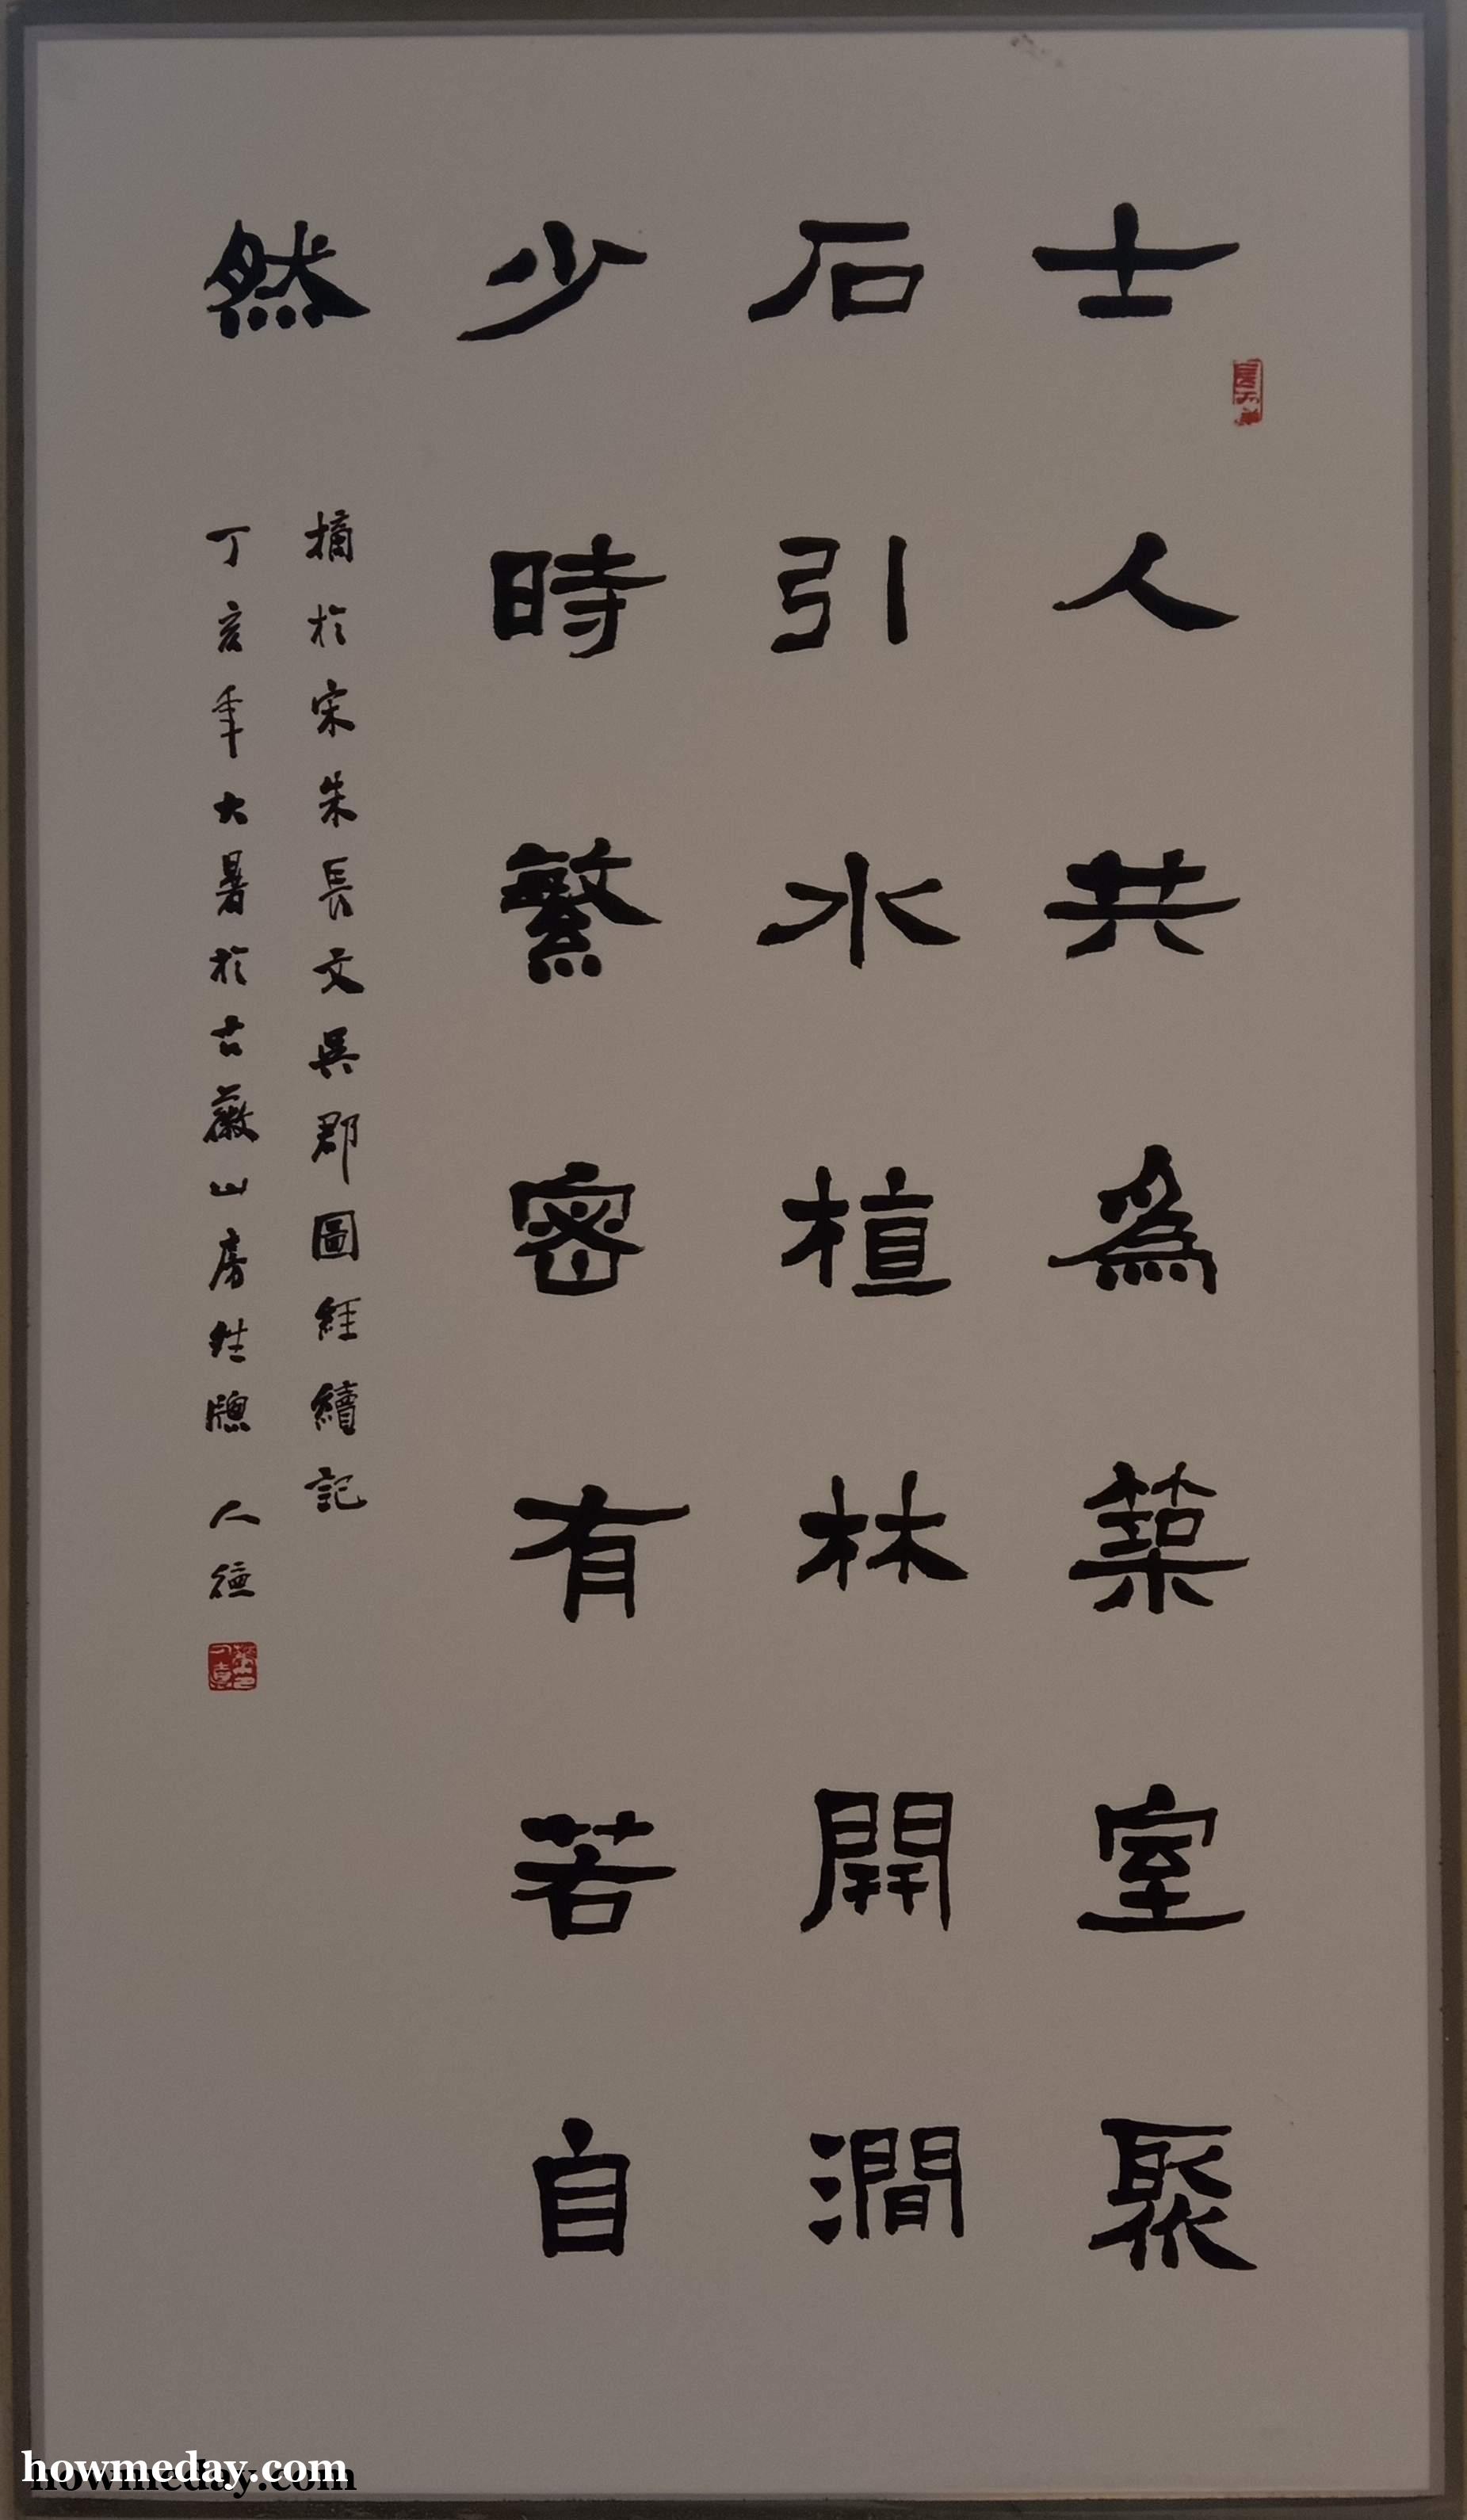 士人共為築室聚
石引水植林開澗
少時繁密有若自
然
摘於宋朱長文吳郡圖經續記
丁亥年大暑於古薇山房牖人德
howmeday.com